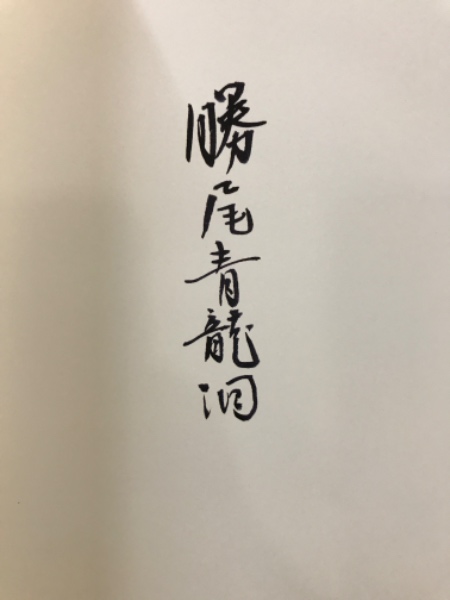 勝尾青龍洞